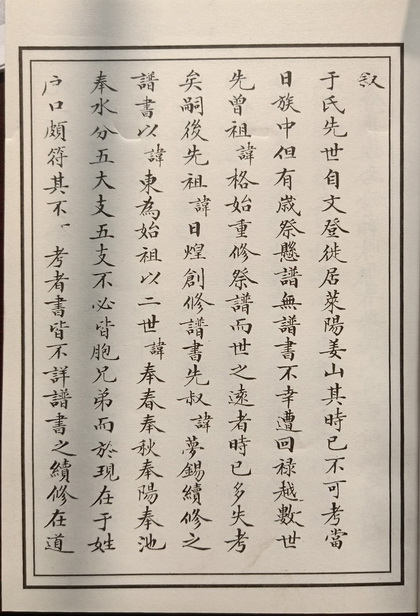 叙
于氏先世自文登徙居萊陽姜山其時已不可考當
日族中但有歲祭懸譜無譜書不幸遭回祿越數世
先曾祖諱格始重修祭譜而世之遠者時已多失考
矣嗣後先祖諱日煌創修譜書先叔諱夢錫續修之
譜書以諱東為始祖以二世諱奉春奉秋奉陽奉池
奉水分五大支五支不必皆胞兄弟而於現在于姓
户口頗符其不一考者書皆不詳譜書之續修在道